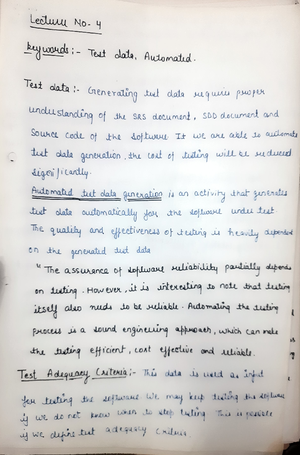 Lecture No- 4
Keywords:- Test data, Automated.
Test data :- Generating test data requires proper
understanding of the SRS document, SDD document and
Source code of the Software If we are able to automate
test data generation, the cost of testing will be reduced
significantly.
Automated test data generation is an activity that generates
test data automatically for the software under test
The quality and effectiveness of testing is heavily dependent
on the generated test data
" The assurance of software reliability partially depends
on testing. However, it is interesting to note that testing
itself also needs to be reliable. Automating the testing
process is a sound engineering approach, which can make
the testing efficient, cost effective and reliable.
Test Adequacy Criteria:- This data is used as input
for testing the software We may keep testing the software
if we do not know when to stop testing This is possible
if we define test adequacy Criteria.